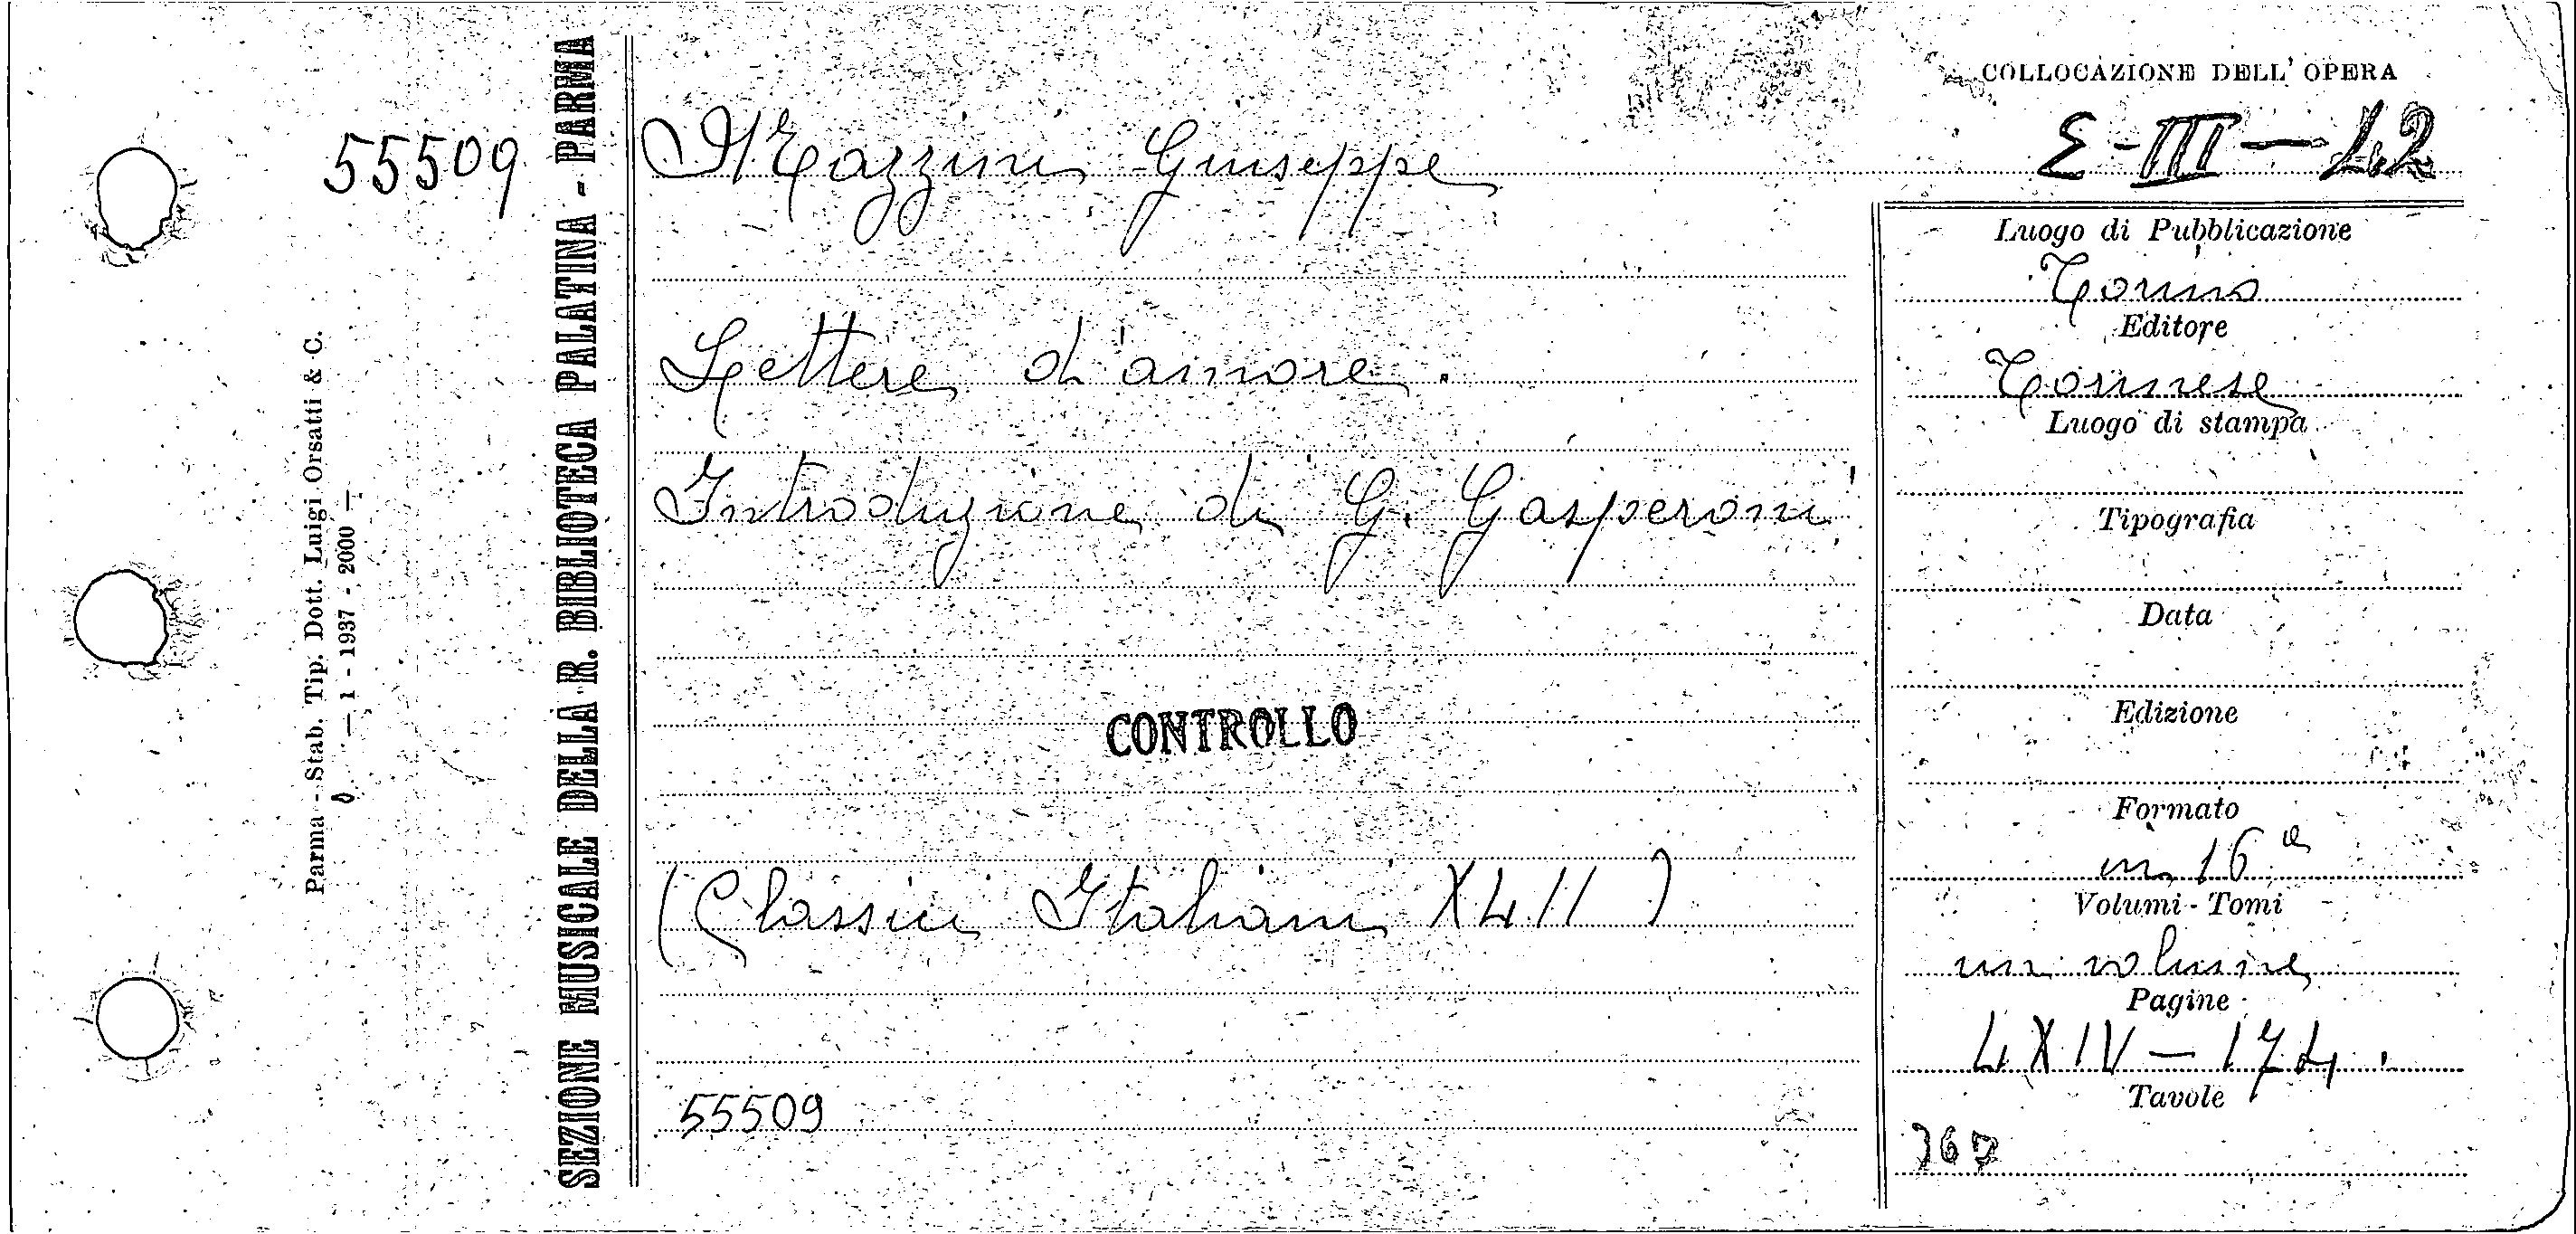 COLLOCAZIONE DELL' OPERA
E-III-42
55509
Mazzini Giuseppe
Lettere d'amore.
Introduzione di G. Gasperoni
CONTROLLO
(Classici Italiani XLII)
55509
Luogo di Pubblicazione
Torino
Editore
Torinese
Luogo di stampa
Tipografia
Data
Edizione
Formato
in 16º
Volumi - Tomi
un volume
Pagine
LXIV - 174.
Tavole
SEZIONE MUSICALE DELLA R. BIBLIOTECA PALATINA - PARMA
Parma - Stab. Tip. Dott. Luigi Orsatti & C.
— 1 - 1937 - 2000 —